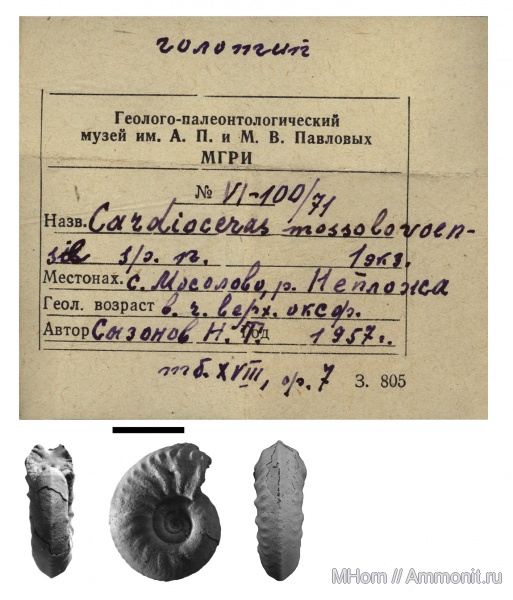 голотип
Геолого-палеонтологический
музей им. А. П. и М. В. Павловых
МГРИ
№ VI-100/71
Назв. Cardioceras mossolovoen-
sis sp. n. 1 экз.
Местонах. с. Мосолово, р. Непложа
Геол. возраст в. ч. верх. оксф.
Автор Сызонов Н. Т. Год 1957 г.
тб. XVIII, ф. 7 З. 805
MHorn // Ammonit.ru